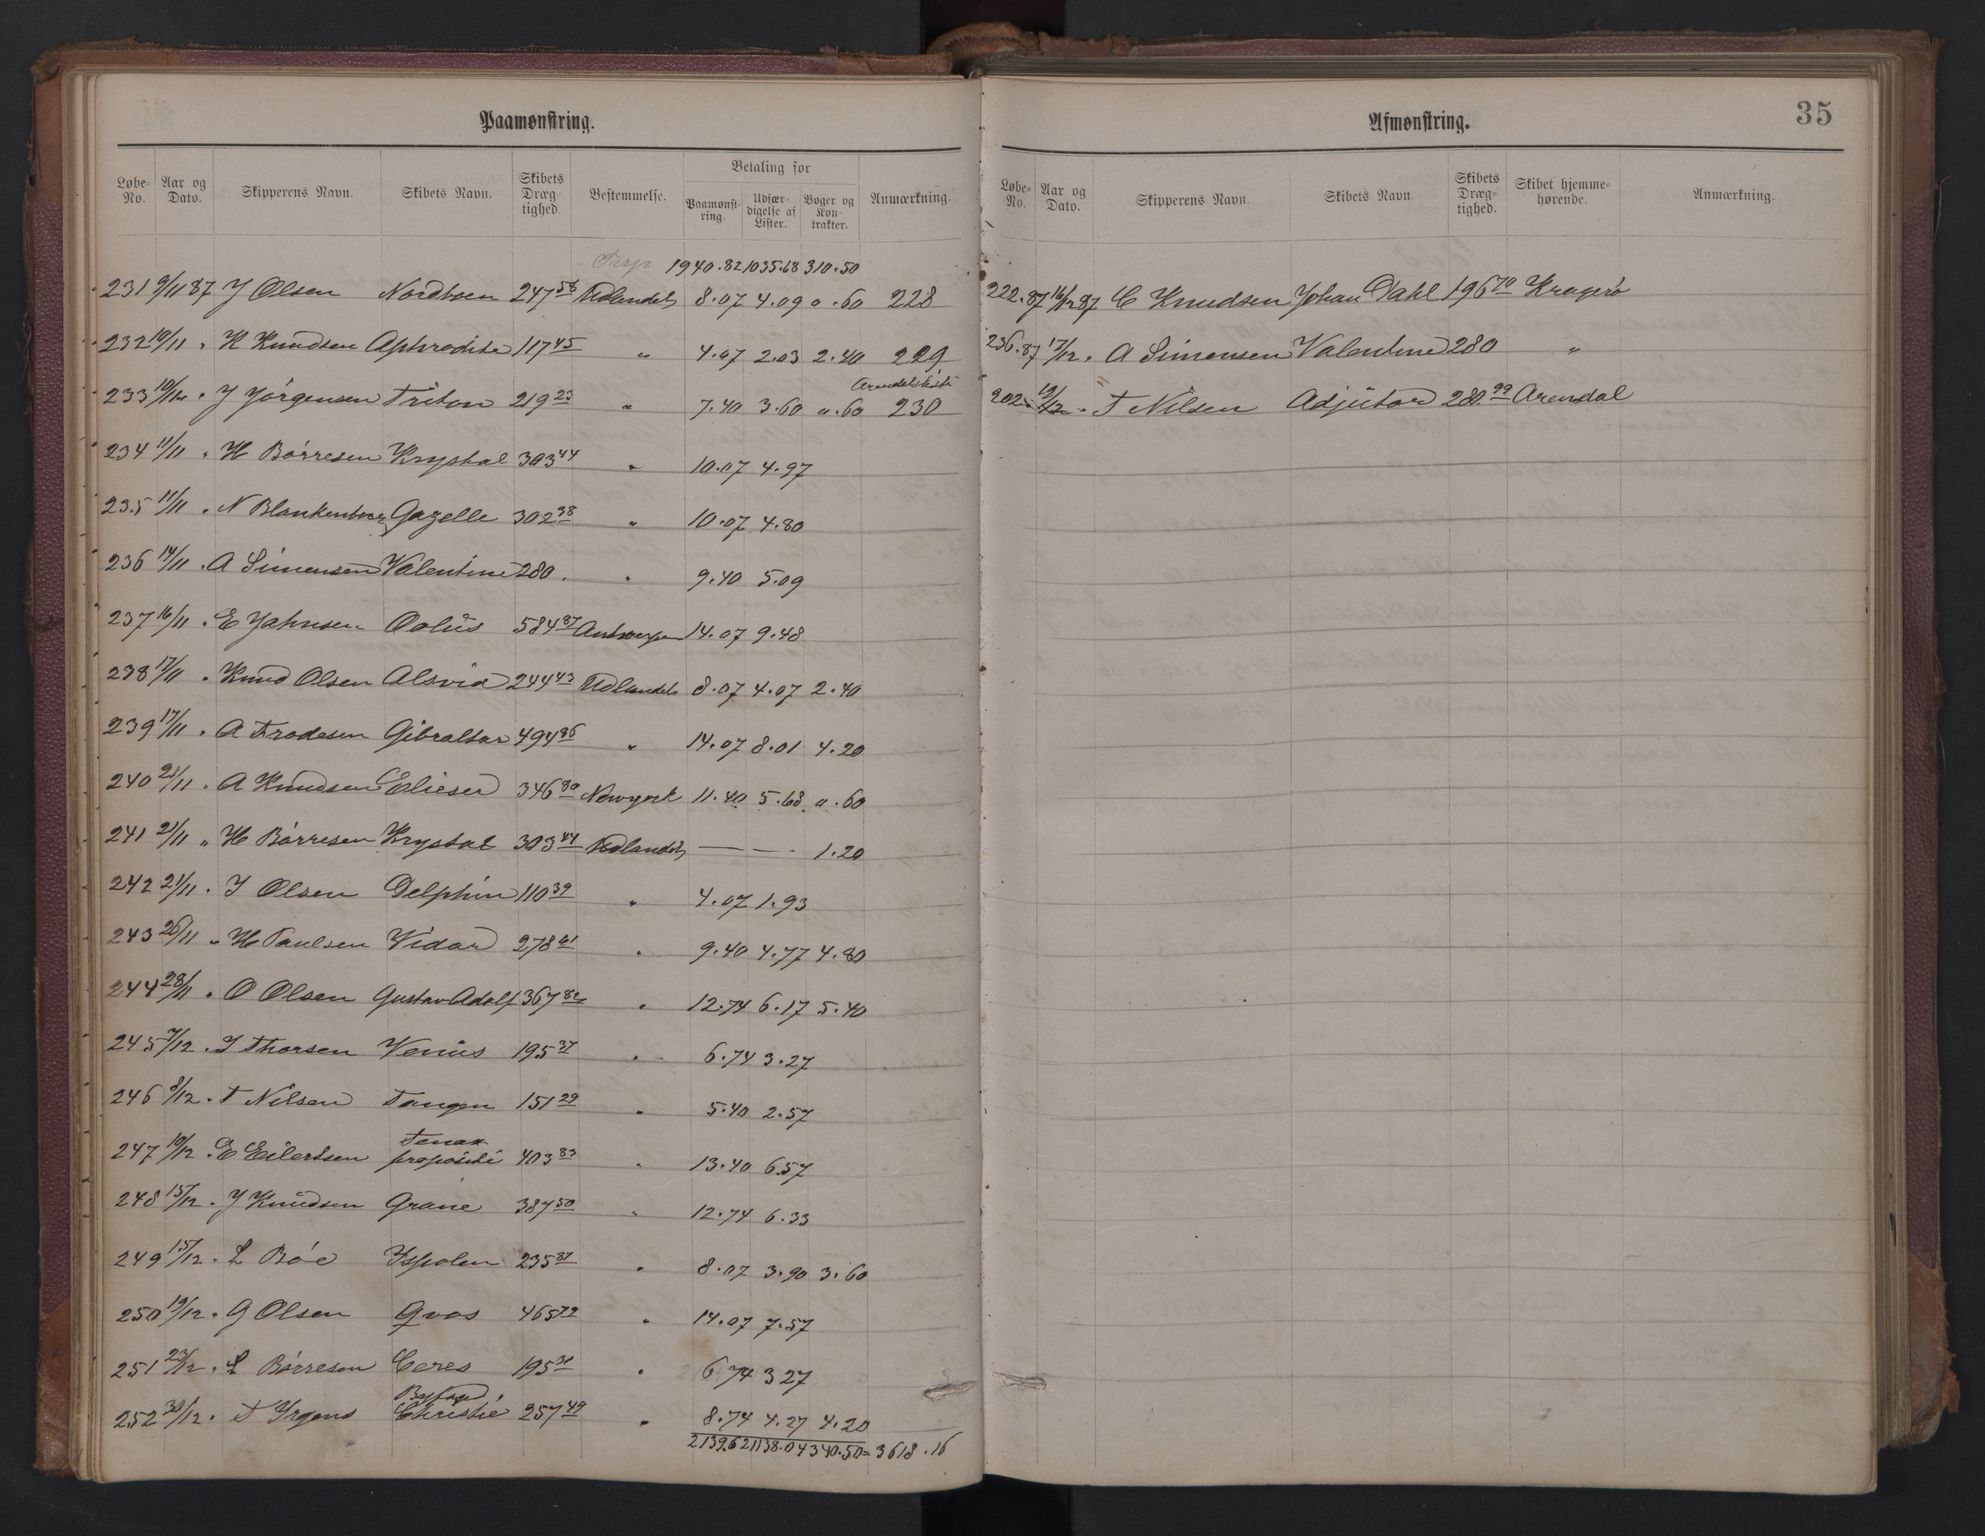 Paamønstring.
Løbe-No. Aar og Dato. Skipperens Navn. Skibets Navn. Skibets Dræg-tighed. Bestemmelse. Betaling for Anmærkning.
Paamønst-ring. Udfær-digelse af Lister. Bøger og Kon-trakter.
Trsp 1940.82 1035.68 310.50
231 9/11 87 J Olsen Nordboen 247 58 Udlandet 8.07 4.09 0.60 228
232 10/11 " K Knudsen Aphrodite 117 45 " 4.07 2.03 2.40 229
233 10/11 " J Jörgensen Triton 219 23 " 7.40 3.60 0.60 Arendalsliste 230
234 11/11 " H Börresen Krystal 303 44 " 10.07 4.97
235 11/11 " N Blankenborg Gazelle 302 38 " 10.07 4.80
236 14/11 " A Simensen Valentine 280 " 9.40 5.09
237 16/11 " E Jahnsen Oolus 584 87 Antwerpen 14.07 9.48
238 17/11 " Knud Olsen Alsvid 244 43 Udlandet 8.07 4.07 2.40
239 17/11 " A Frodesen Gibraltar 494 86 " 14.07 8.01 4.20
240 21/11 " A Knudsen Elieser 346 80 Newyork 11.40 5.68 0.60
241 21/11 " H Börresen Krystal 303 44 Udlandet — — 1.20
242 21/11 " J Olsen Delphin 110 39 " 4.07 1.93
243 26/11 " H Paulsen Vidar 278 61 " 9.40 4.77 4.80
244 28/11 " O Olsen Gustav Adolf 367 82 " 12.74 6.17 5.40
245 7/12 " J Thorsen Venus 195 37 " 6.74 3.27
246 8/12 " T Nilsen Tangen 151 29 " 5.40 2.57
247 10/12 " E Eilertsen Tenax propositi 403 83 " 13.40 6.57
248 15/12 " J Knudsen Grane 387 50 " 12.74 6.33
249 15/12 " L Böe Ispolen 235 37 " 8.07 3.90 3.60
250 19/12 " G Olsen Qvos 465 72 " 14.07 7.57
251 23/12 " L Börresen Ceres 195 31 " 6.74 3 27
252 30/12 " T Irgens Byfogd Christie 257 49 " 8.74 4.27 4.20
2139.62 1138.04 340.50 = 3618.16
Afmønstring.
35
Løbe-No. Aar og Dato. Skipperens Navn. Skibets Navn. Skibets Dræg-tighed. Skibet hjemme-hørende. Anmærkning.
222.87 16/12 87 C Knudsen Johan Dahl 196 70 Kragerö
236.87 17/12 " A Simensen Valentine 280 "
202 " 19/12 " T Nilsen Adjutor 280.99 Arendal